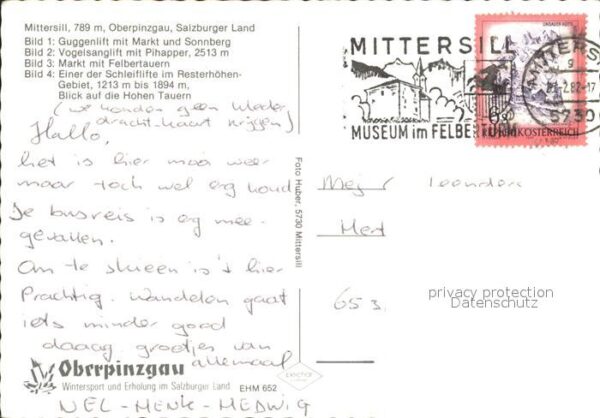 Mittersill, 789 m, Oberpinzgau, Salzburger Land
Bild 1: Guggenlift mit Markt und Sonnberg
Bild 2: Vogelsanglift mit Pihapper, 2513 m
Bild 3: Markt mit Felbertauern
Bild 4: Einer der Schleiflifte im Resterhöhen-
Gebiet, 1213 m bis 1894 m,
Blick auf die Hohen Tauern
(we konden geen klederdracht-kaart krijgen)
Hallo,
het is hier mooi weer
maar toch wel erg koud
De busreis is erg mee-
gevallen.
Om te skieen is 't hier
Prachtig. Wandelen gaat
iets minder good
daaag groetjes van
allemaal
NEL - HENK - HEDWIG
Oberpinzgau
Wintersport und Erholung im Salzburger Land
EHM 652
Foto Huber, 5730 Mittersill
MITTERSILL
MUSEUM im FELBERTURM
MITTERSILL
2.82-17
5730
REPUBLIK ÖSTERREICH
Mert
65 s.
privacy protection
Datenschutz